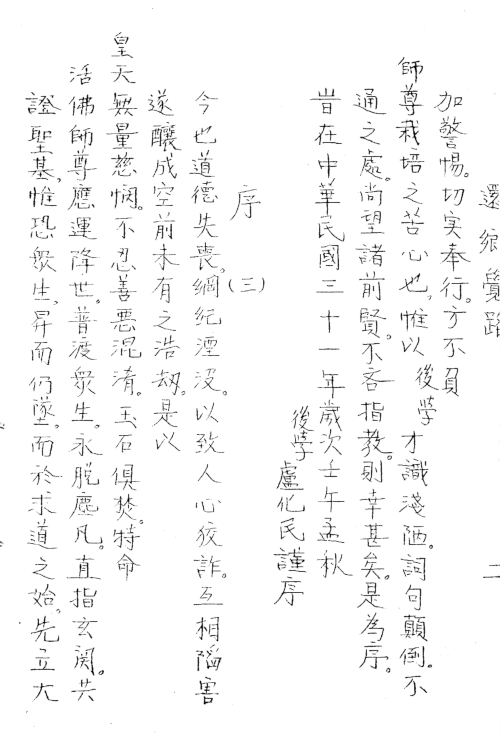 還鄉覺路 二
加警惕。切实奉行。方不負
師尊栽培之苦心也。惟以後学才識淺陋。詞句顛倒。不
通之處。尚望諸前賢。不吝指教。則幸甚矣。是為序。
旹在中華民國三十一年歲次壬午孟秋
後學 盧化民謹序
序 (三)
今也道德失喪。綱紀湮没。以致人心狡詐。互相陷害
遂釀成空前未有之浩劫。是以
皇天無量慈憫。不忍善惡混淆。玉石俱焚。特命
活佛師尊應運降世。普渡眾生。永脱塵凡。直指玄関。共
證聖基。惟恐眾生。昇而仍墜。而於求道之始。先立大